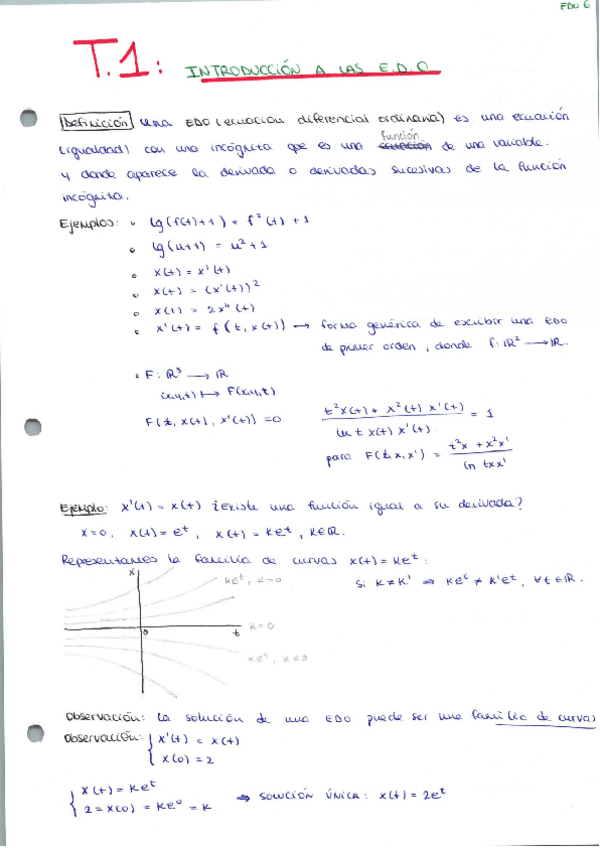 EDO 6
T.1: INTRODUCCIÓN A LAS E.D.O
Definición Una EDO (ecuación diferencial ordinaria) es una ecuación
(igualdad) con una incógnita que es una función de una variable.
y donde aparece la derivada o derivadas sucesivas de la función
incógnita.
Ejemplos: • lg(f(t)+1) = f²(t) + 1
• lg(u+1) = u²+1
• x(t) = x'(t)
• x(t) = (x'(t))²
• x(t) = 2x''(t)
• x'(t) = f(t, x(t)) → forma genérica de escribir una EDO
de primer orden, donde f: ℝ² → ℝ.
• F: ℝ³ → ℝ
(x,y,t) ↦ F(x,y,t)
F(t, x(t), x'(t)) = 0 (t²x(t) + x²(t) x'(t)) / (ln t x(t) x'(t)) = 1
para F(t,x,x') = (t²x + x²x') / (ln txx')
Ejemplo: x'(t) = x(t) ¿Existe una función igual a su derivada?
x=0, x(t) = eᵗ, x(t) = Keᵗ, K∈ℝ.
Representamos la familia de curvas x(t) = Keᵗ:
Si K≠K' ⇒ Keᵗ ≠ K'eᵗ, ∀t∈ℝ.
x
Keᵗ, K>0
0 t K=0
Keᵗ, K<0
Observación: La solución de una EDO puede ser una familia de curvas
Observación: { x'(t) = x(t)
x(0) = 2
{ x(t) = Keᵗ
2 = x(0) = Ke⁰ = K ⇒ SOLUCIÓN ÚNICA: x(t) = 2eᵗ